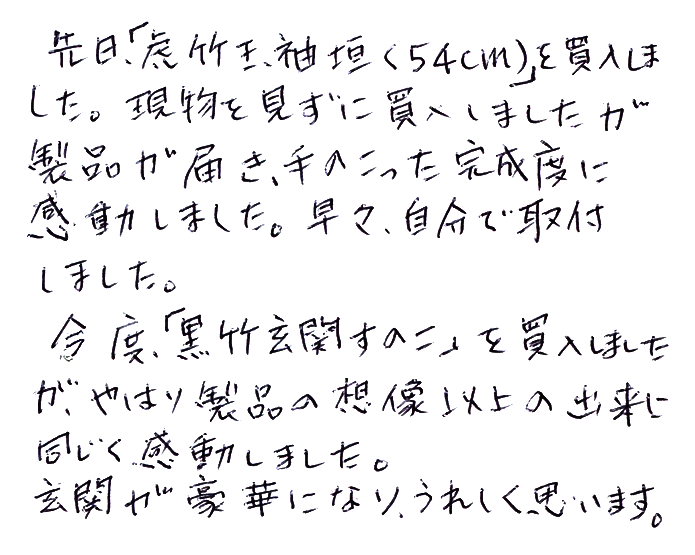 先日、「虎竹玉袖垣(54cm)」を買入しま
した。現物を見ずに買入しましたが
製品が届き、手のこった完成度に
感動しました。早々、自分で取付
しました。
今度、「黒竹玄関すのこ」を買入しました
が、やはり製品の想像以上の出来に
同じく感動しました。
玄関が豪華になり、うれしく思います。